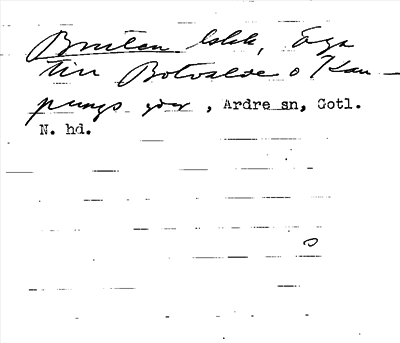 Bruten lokk, äga
till Botvalde o Kau-
pungs gdr, Ardre sn, Gotl.
N. hd.